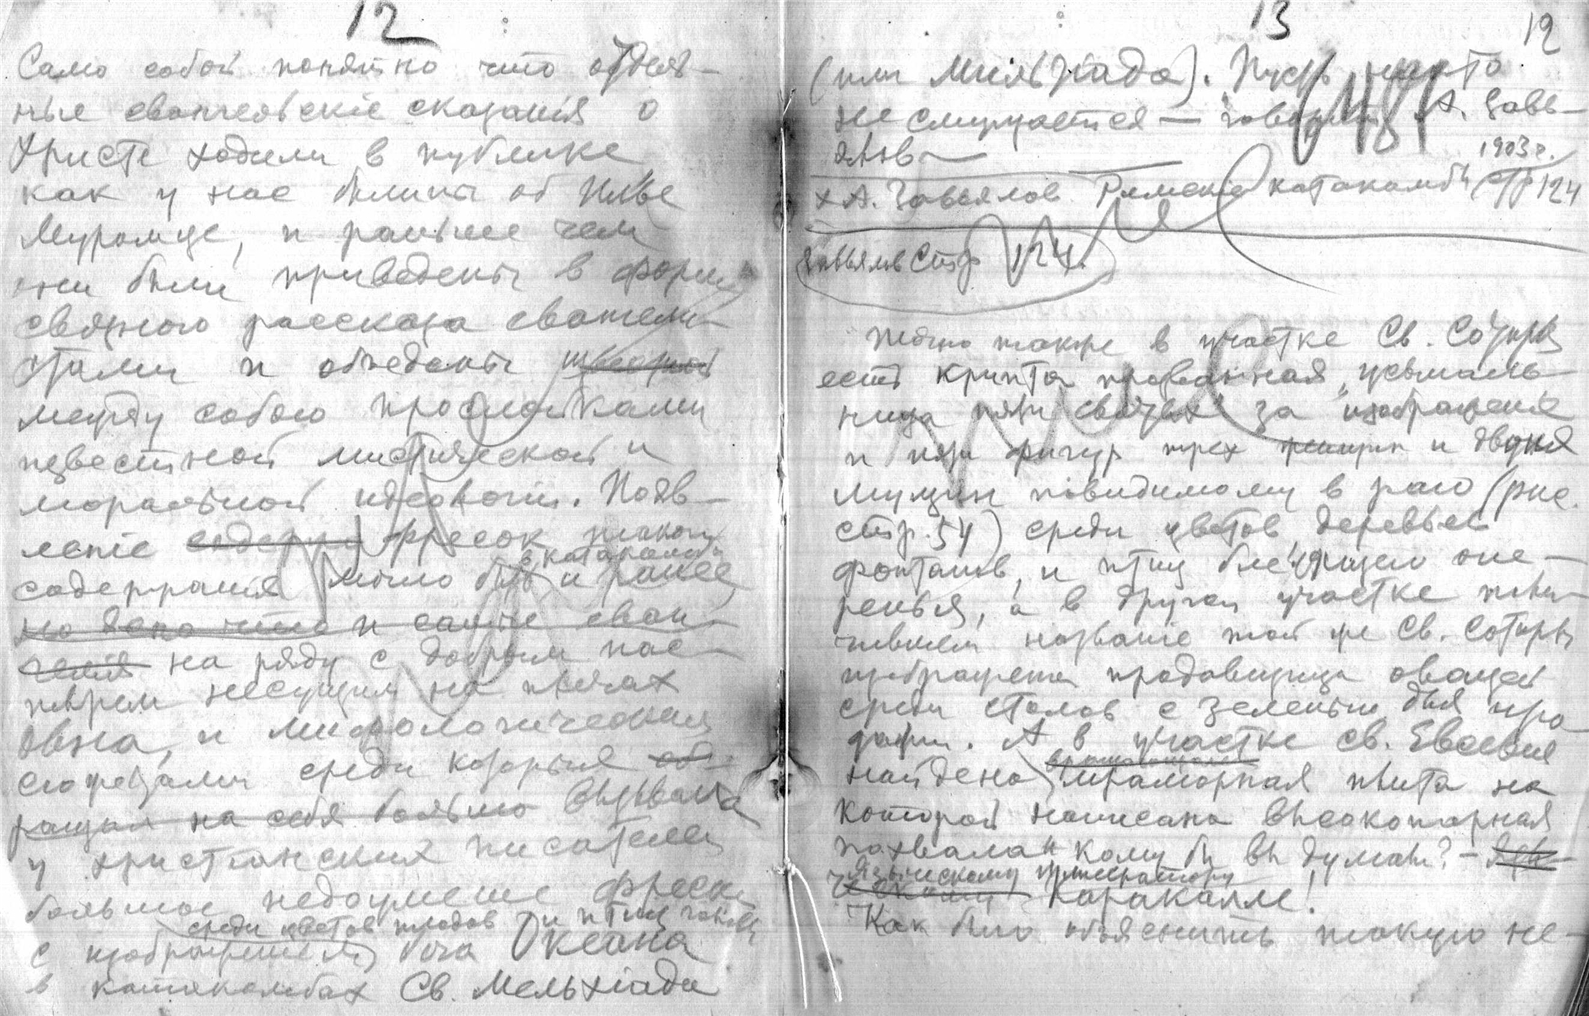 12
Само собой понятно что отдель-
ные евангельскіе сказанія о
Христе ходили в публике
как у нас былины об Илье
Муромце, и раньше чем
они были приведены в форму
связного рассказа евангели-
стами и объеденены
между собою прослойками
известной мистической и
моральной идеологіи. Появ-
леніе фресок такого
содержания могло быть в катакомбах и ранее,
но ясно что и самые еван-
гелія на ряду с добрым пас-
тырем несущим на плечах
овна, и мифологическими
сюжетами среди которых об-
ращал на себя больше вызывала
у христіанских писателей
большое недоумение фреска
среди цветов плодов и птиц
с изображением бога Океана
в катакомбах Св. Мельхіада
13
12
(или Мильтіада). Пусть никто
не смущается — говорит А. Завь-
ялов
1903 г.
х А. Завьялов Римские катакомбы стр 124
Завьялов Стр 124.
Точно также в участке Св. Сотиры
есть крипта прозванная "усыпаль-
ница пяти святых" за изображение
и пяти фигур трех женщин и двоих
мущин повидимому в раю (рис.
стр. 54) среди цветов, деревьев
фонтанов, и птиц блестящего опе-
ренья, а в другом участке
название той же Св. Сотиры
изображена продавщица овощей
среди столов с зеленью для про-
дажи. А в участке св. Евсевия
найдена мраморная плита на
которой написана высокопарная
похвала и кому бы вы думали? —
языческому императору
Каракалле!
Как было объяснить такую не-